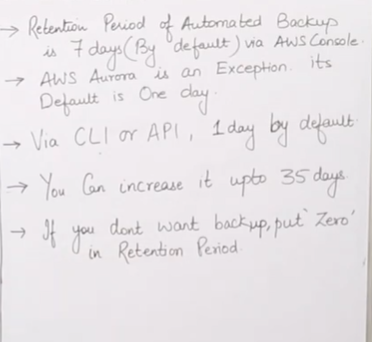 → Retention Period of Automated Backup
is 7 days (By default) via AWS Console.
→ AWS Aurora is an Exception. its
Default is One day.
→ Via CLI or API, 1 day by default.
→ You Can increase it upto 35 days.
→ If you dont want backup, put 'Zero'
in Retention Period.